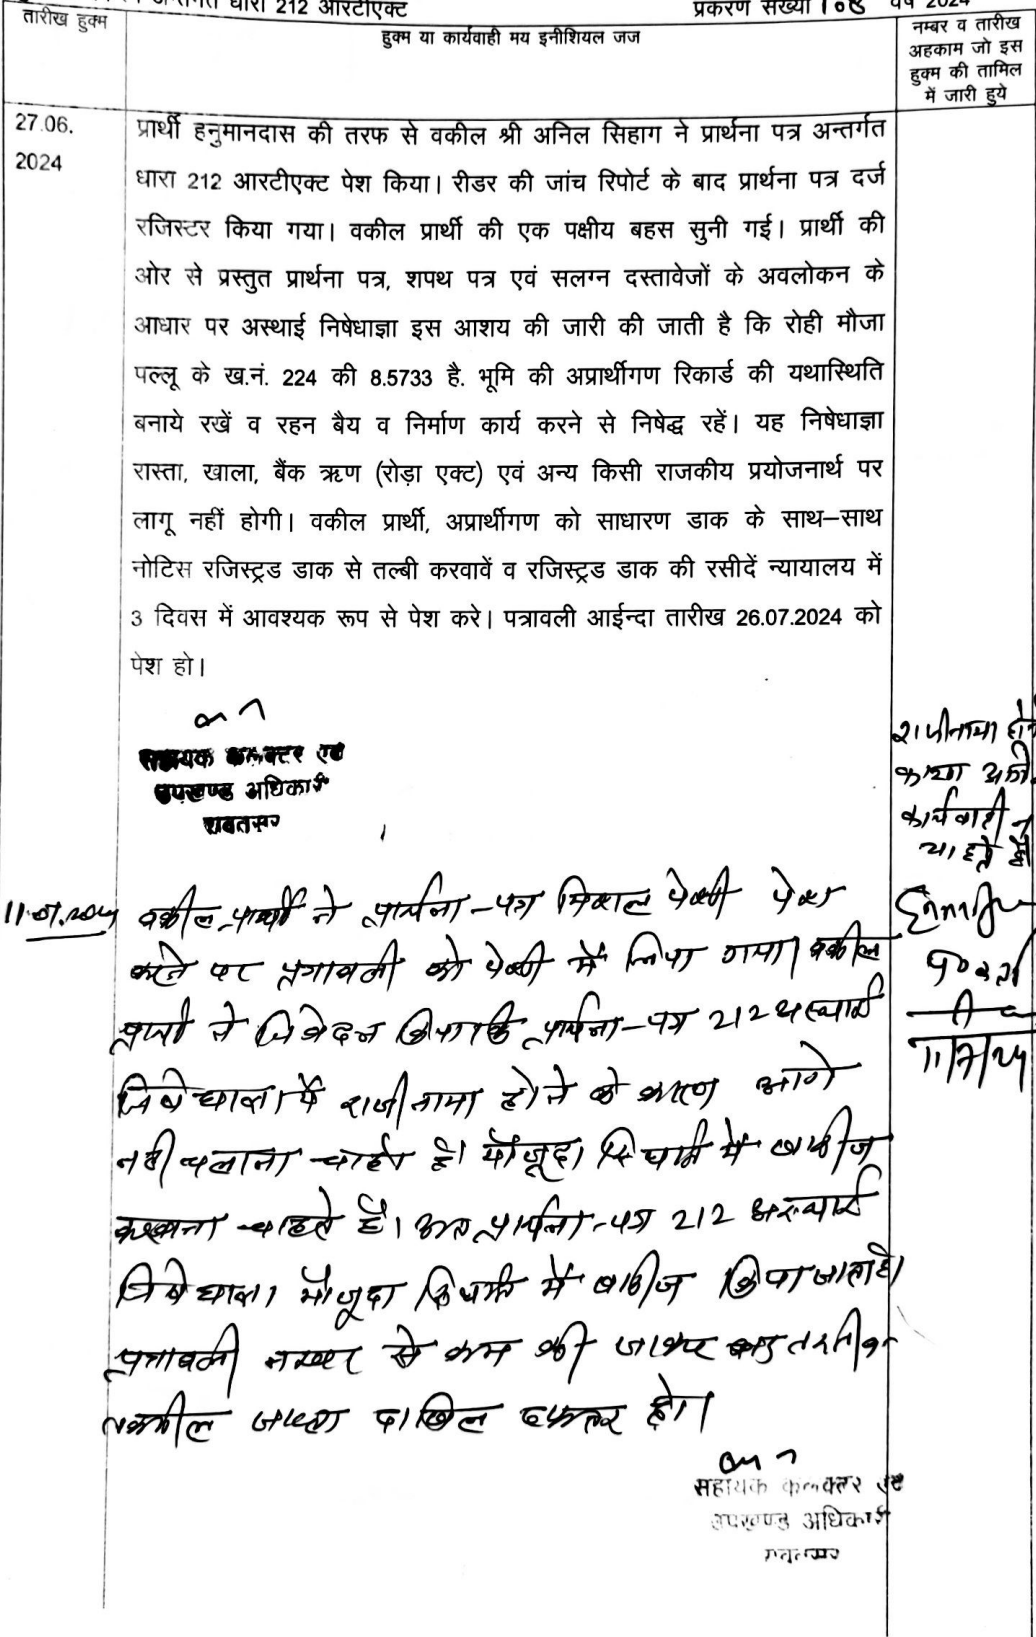 अन्तर्गत धारा 212 आरटीएक्ट
प्रकरण संख्या 108 वर्ष 2024
तारीख हुक्म
हुक्म या कार्यवाही मय इनीशियल जज
नम्बर व तारीख
अहकाम जो इस
हुक्म की तामिल
में जारी हुये
27.06.
2024
प्रार्थी हनुमानदास की तरफ से वकील श्री अनिल सिहाग ने प्रार्थना पत्र अन्तर्गत
धारा 212 आरटीएक्ट पेश किया। रीडर की जांच रिपोर्ट के बाद प्रार्थना पत्र दर्ज
रजिस्टर किया गया। वकील प्रार्थी की एक पक्षीय बहस सुनी गई। प्रार्थी की
ओर से प्रस्तुत प्रार्थना पत्र, शपथ पत्र एवं सलग्न दस्तावेजों के अवलोकन के
आधार पर अस्थाई निषेधाज्ञा इस आशय की जारी की जाती है कि रोही मौजा
पल्लू के ख.नं. 224 की 8.5733 है. भूमि की अप्रार्थीगण रिकार्ड की यथास्थिति
बनाये रखें व रहन बैय व निर्माण कार्य करने से निषेद्ध रहें। यह निषेधाज्ञा
रास्ता, खाला, बैंक ऋण (रोड़ा एक्ट) एवं अन्य किसी राजकीय प्रयोजनार्थ पर
लागू नहीं होगी। वकील प्रार्थी, अप्रार्थीगण को साधारण डाक के साथ–साथ
नोटिस रजिस्ट्रड डाक से तल्बी करवावें व रजिस्ट्रड डाक की रसीदें न्यायालय में
3 दिवस में आवश्यक रूप से पेश करे। पत्रावली आईन्दा तारीख 26.07.2024 को
पेश हो।
सहायक कलक्टर एवं
उपखण्ड अधिकारी
रावतसर
राजीनामा होने
कार्यवाही न
चाहते है
11.07.2024 वकील प्रार्थी ने प्रार्थना-पत्र मिसल पेशी पेश
करने पर पत्रावली को पेशी में लिया गया। वकील
प्रार्थी ने निवेदन किया कि प्रार्थना-पत्र 212 अस्थाई
निषेधाज्ञा में राजीनामा होने के कारण आगे
नही चलाना चाहते है। मौजूदा स्थिति में खारीज
करवाना चाहते है। अतः प्रार्थना-पत्र 212 अस्थाई
निषेधाज्ञा मौजूदा स्थिति में खारीज किया जाता है।
पत्रावली नम्बर से कम की जाकर बाद तरतीब
तकमील जाब्ता दाखिल दफ्तर हो।
11/7/24
सहायक कलक्टर एवं
उपखण्ड अधिकारी
रावतसर